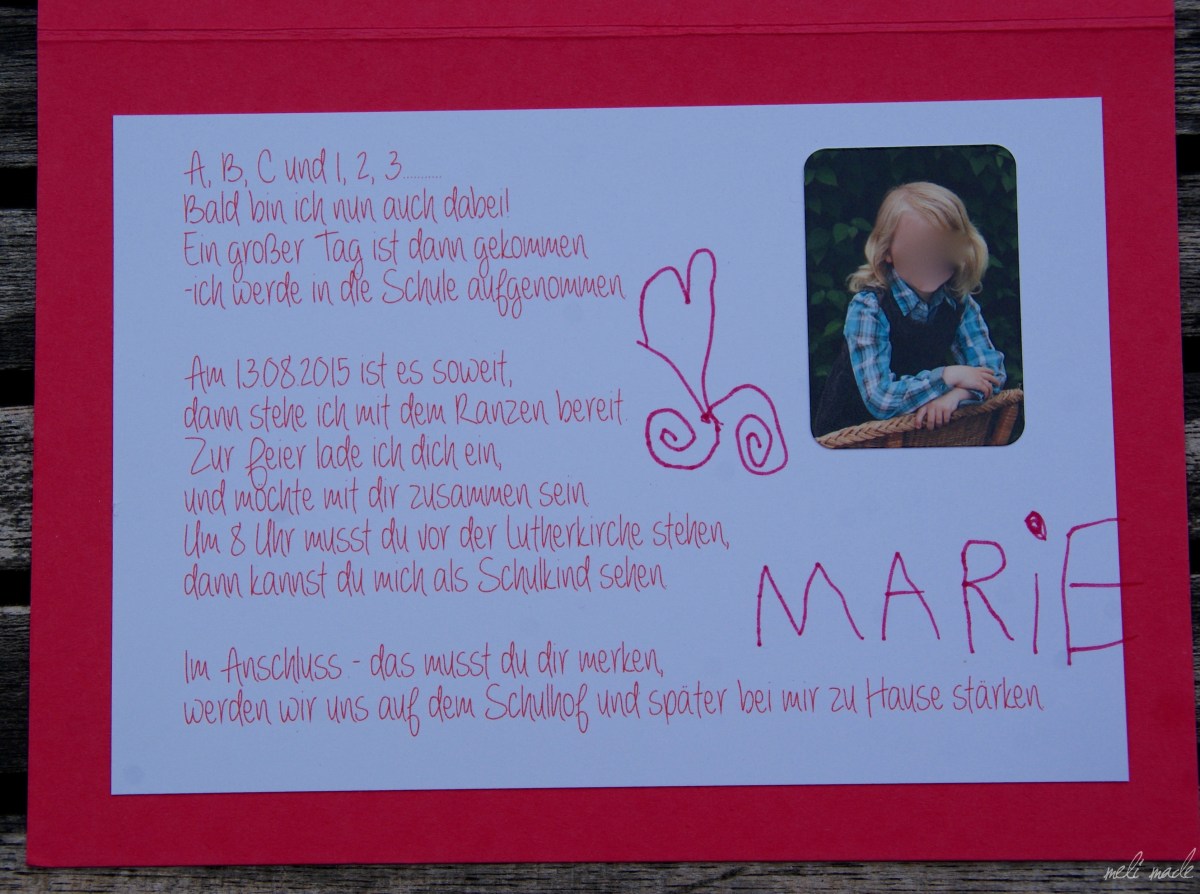 A, B, C und 1, 2, 3..........
Bald bin ich nun auch dabei!
Ein großer Tag ist dann gekommen
-ich werde in die Schule aufgenommen
Am 13.08.2015 ist es soweit,
dann stehe ich mit dem Ranzen bereit.
Zur Feier lade ich dich ein,
und möchte mit dir zusammen sein
Um 8 Uhr musst du vor der Lutherkirche stehen,
dann kannst du mich als Schulkind sehen
MARiE
Im Anschluss - das musst du dir merken,
werden wir uns auf dem Schulhof und später bei mir zu Hause stärken
meli made